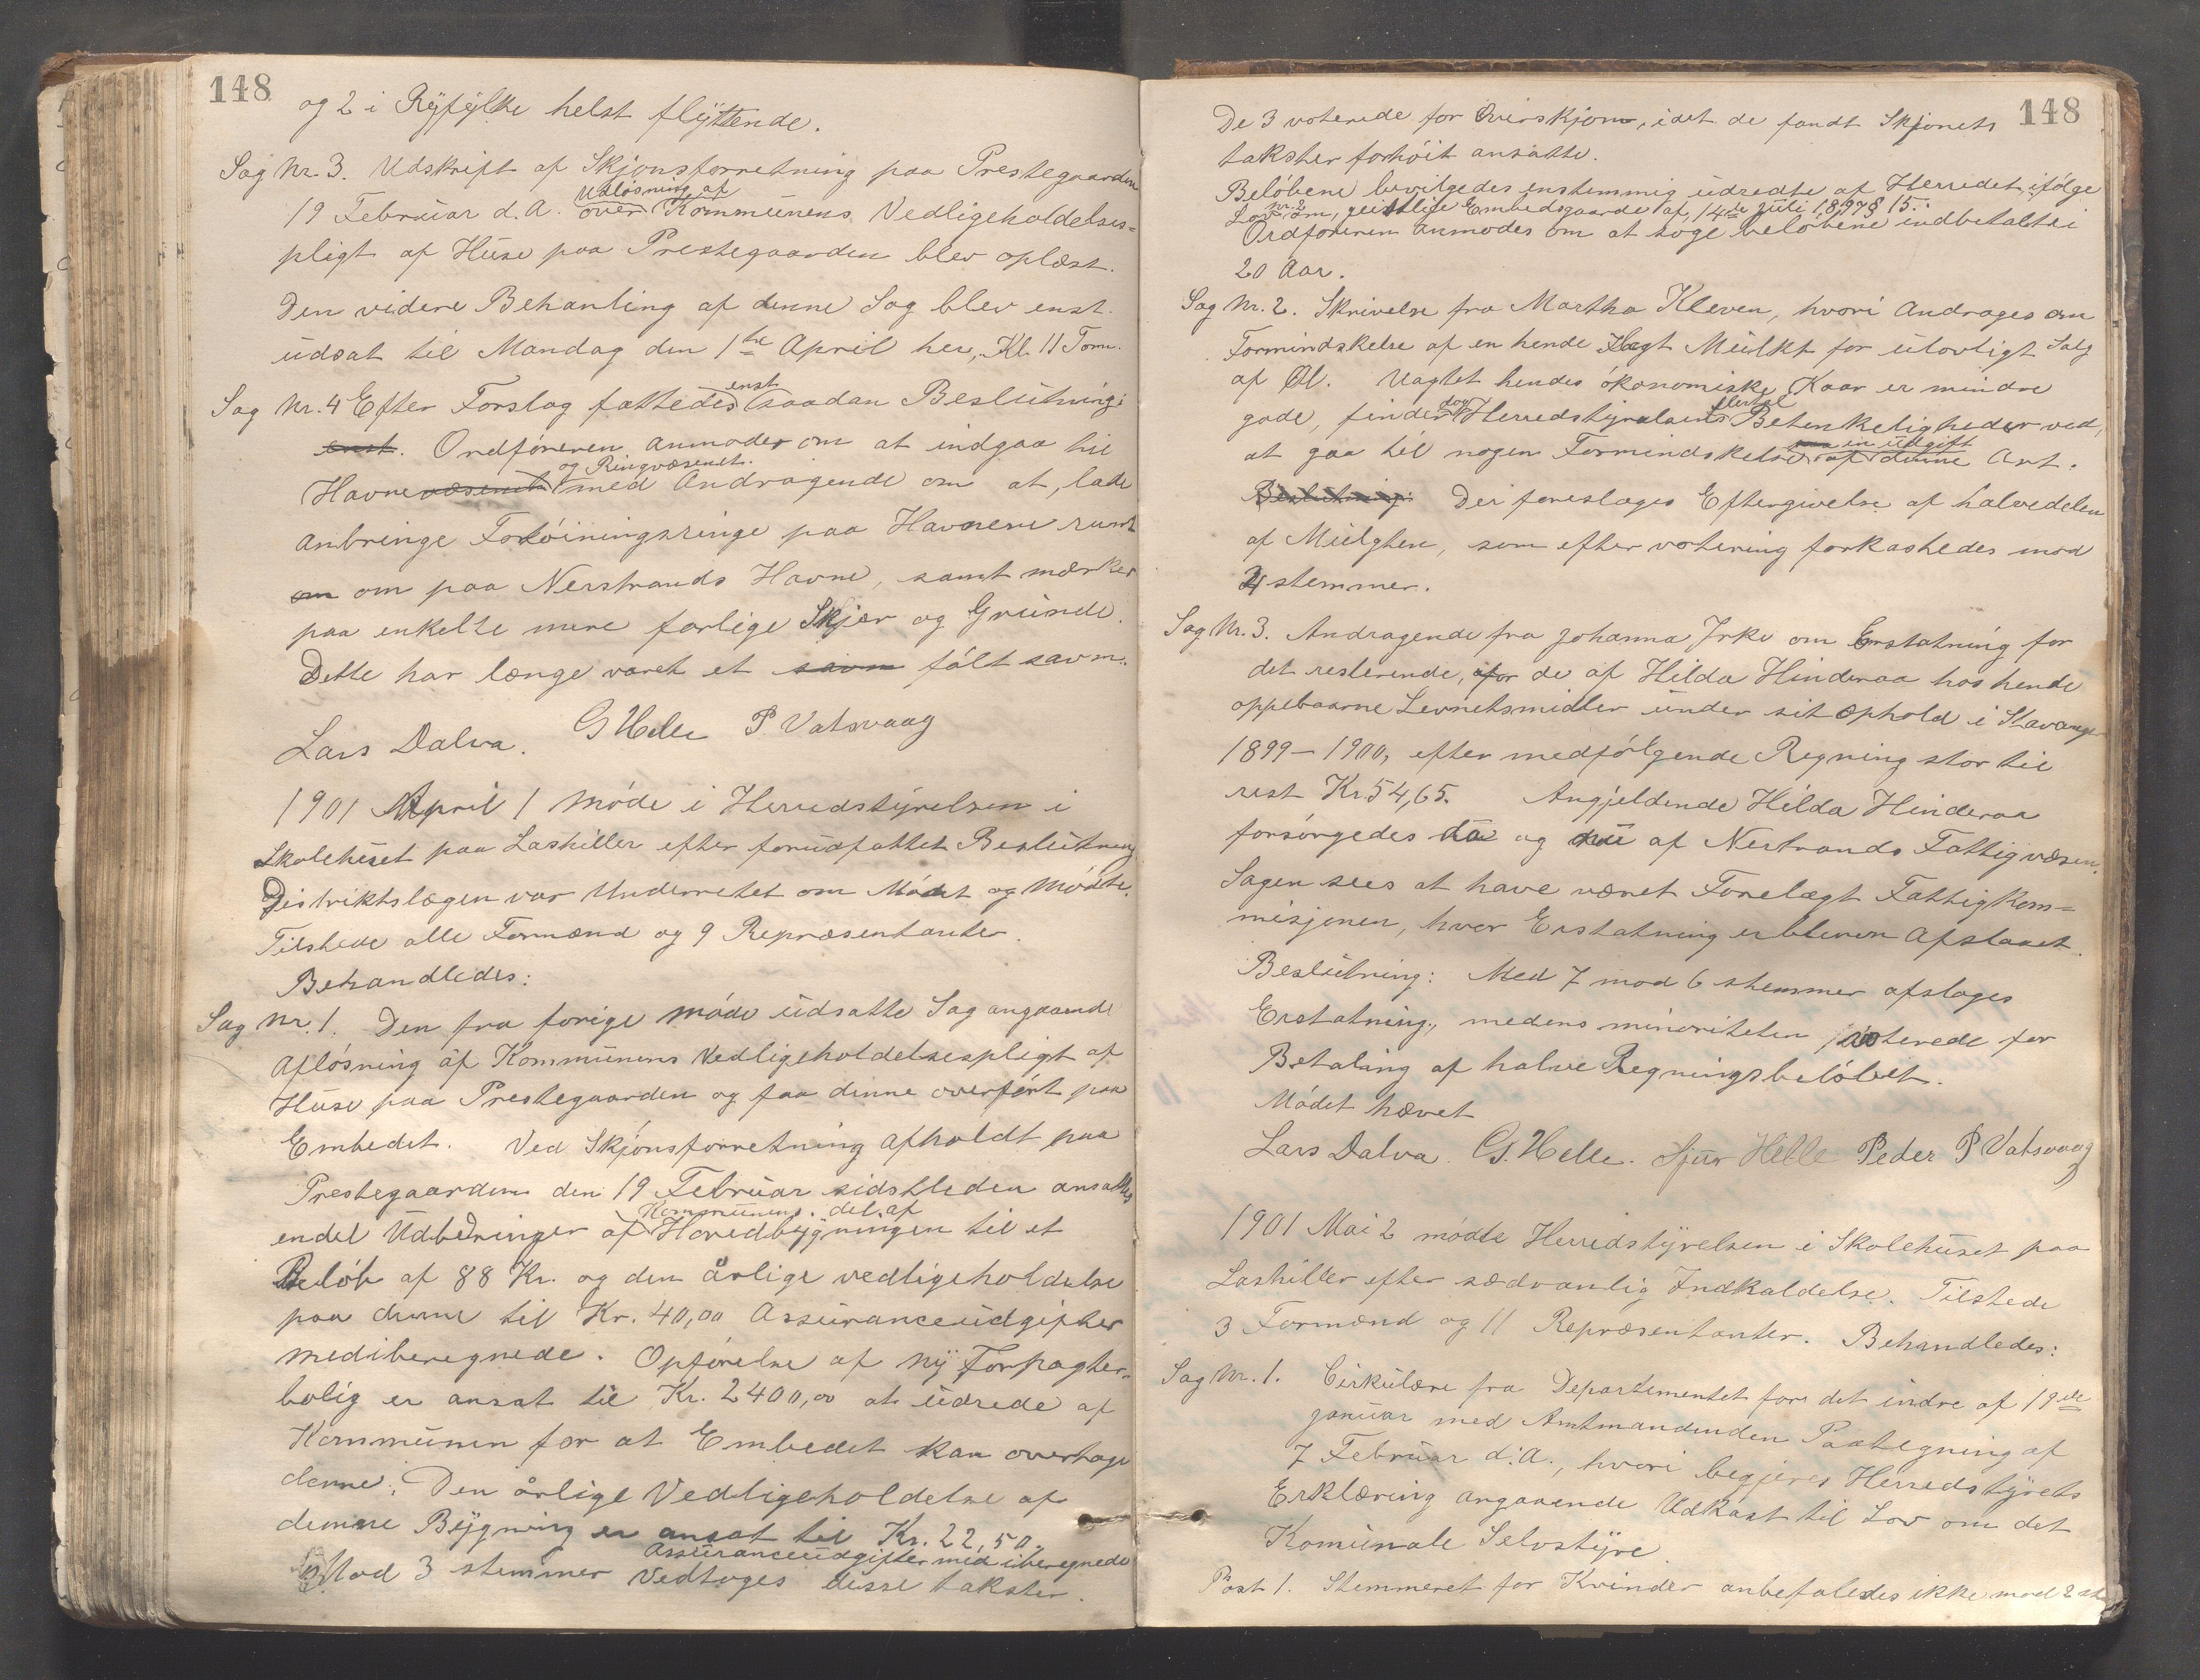 148
og 2 i Ryfylke helst flyttende.
Sag Nr. 3. Udskrift af Skjønsforretning paa Prestegaarden
Udløsning af
19 Februar d. A. over Kommunens Vedligeholdelses=
pligt af Huse paa Prestegaarden blev oplæst.
Den videre Behanling af denne Sag blev enst.
udsat til Mandag den 1ste April her, Kl. 11 Form.
enst
Sag Nr. 4 Efter Forslag fattedes saadan Beslutning:
enst. Ordføreren anmodes om at indgaa til
og Ringvæsenet.
Havnevæsenet med Andragende om at, lade
anbringe Fortøiningsringe paa Havnene rundt
om om paa Nerstrands Havne, samt mærker
paa enkelte mere farlige Skjær og Grunde.
Dette har længe været et savn følt savn.
Lars Dalva. G Helle P Vatsvaag
1901 April 1 Møde i Herredstyrelsen i
Skolehuset paa Lashiller efter forudfattet Beslutning
Distriktslægen var Underretet om Mødet og Mødte.
Tilstede alle Formænd og 9 Repræsentanter.
Behandledes:
Sag Nr. 1. Den fra forige Møde udsatte Sag angaaende
Afløsning af Kommunens Vedligeholdelsespligt af
Huse paa Prestegaarden og faa dinne overført paa
Embedet. Ved Skjønsforretning afholdt paa
Prestegaarden den 19 Februar sidstleden ansattes
Kommunens del af
endel Udbedringer af Hovedbygningen til et
Beløb af 88 Kr. og den årlige vedligeholdelse
paa denne til Kr. 40,00 Assuranceudgifter
mediberegnede. Opførelse af ny Forpagter-
bolig er ansat til Kr. 2400,00 at udrede af
Kommunen for at Embedet kan overtage
denne. Den årlige Vedligeholdelse af
denne Bygning er ansat til Kr. 22,50.
Assuranceudgifter med iberegnede
Mod 3 stemmer Vedtoges disse takster.
148
De 3 voterede for Overskjøn, idet de fandt Skjønets
takster forhøit ansatte.
Beløbene bevilgedes enstemmig udredte af Herredet ifølge
Lov nr. 2 om, geistlige Embedsgaarde af, 14de Juli 1897 § 15.
Ordføreren anmodes om at søge beløbene indbetalt i
20 Aar.
Sag Nr. 2. Skrivelse fra Martha Kleven, hvori Andrages om
Formindskelse af en hende Ilagt Mulkt for ulovligt Salg
af Øl. Uagtet hendes økonomiske Kaar er mindre
dog flertal
gode, finder Herredstyrelsens Betenkeligheder ved,
en udgift
at gaa til nogen Formindskelse af denne Art.
Beslutning: Der foreslages Eftergivelse af halvedelen
af Mulgten, som efter votering forkastedes mod
4 stemmer.
Sag Nr. 3. Andragende fra Johanna Jrke om Erstatning for
det resterende, for de af Hilda Hinderaa hos hende
oppebaarne Levnetsmidler under sit Ophold i Stavanger
1899 – 1900, efter medfølgende Regning stor til
rest Kr. 54,65. Angjeldende Hilda Hinderaa
forsørgedes da og nu af Nertrands Fattigvæsen.
Sagen sees at have været Forelægt Fattigkom=
misjonen, hvor Erstatning er bleven Afslaaet.
Beslutning: Med 7 mod 6 stemmer afsloges
Erstatning, medens minoriteten voterede for
Betaling af halve Regningsbeløbet.
Mødet hævet
Lars Dalva. G. Helle. Sjur Helle Peder P Vatsvaag
1901 Mai 2 mødte Herredstyrelsen i Skolehuset paa
Lashiller efter sædvanlig Indkaldelse. Tilstede
3 Formænd og 11 Repræsentanter. Behandledes:
Sag Nr. 1. Cirkulære fra Departementet for det indre af 19de
januar med Amtmandenden Paategning af
7 Februar d. A., hvori begjeres Herredstyrets
Erklæring angaaende Udkast til Lov om det
Komunale Selvstyre.
Post 1. Stemmeret for Kvinder anbefaledes ikke mod 2 st